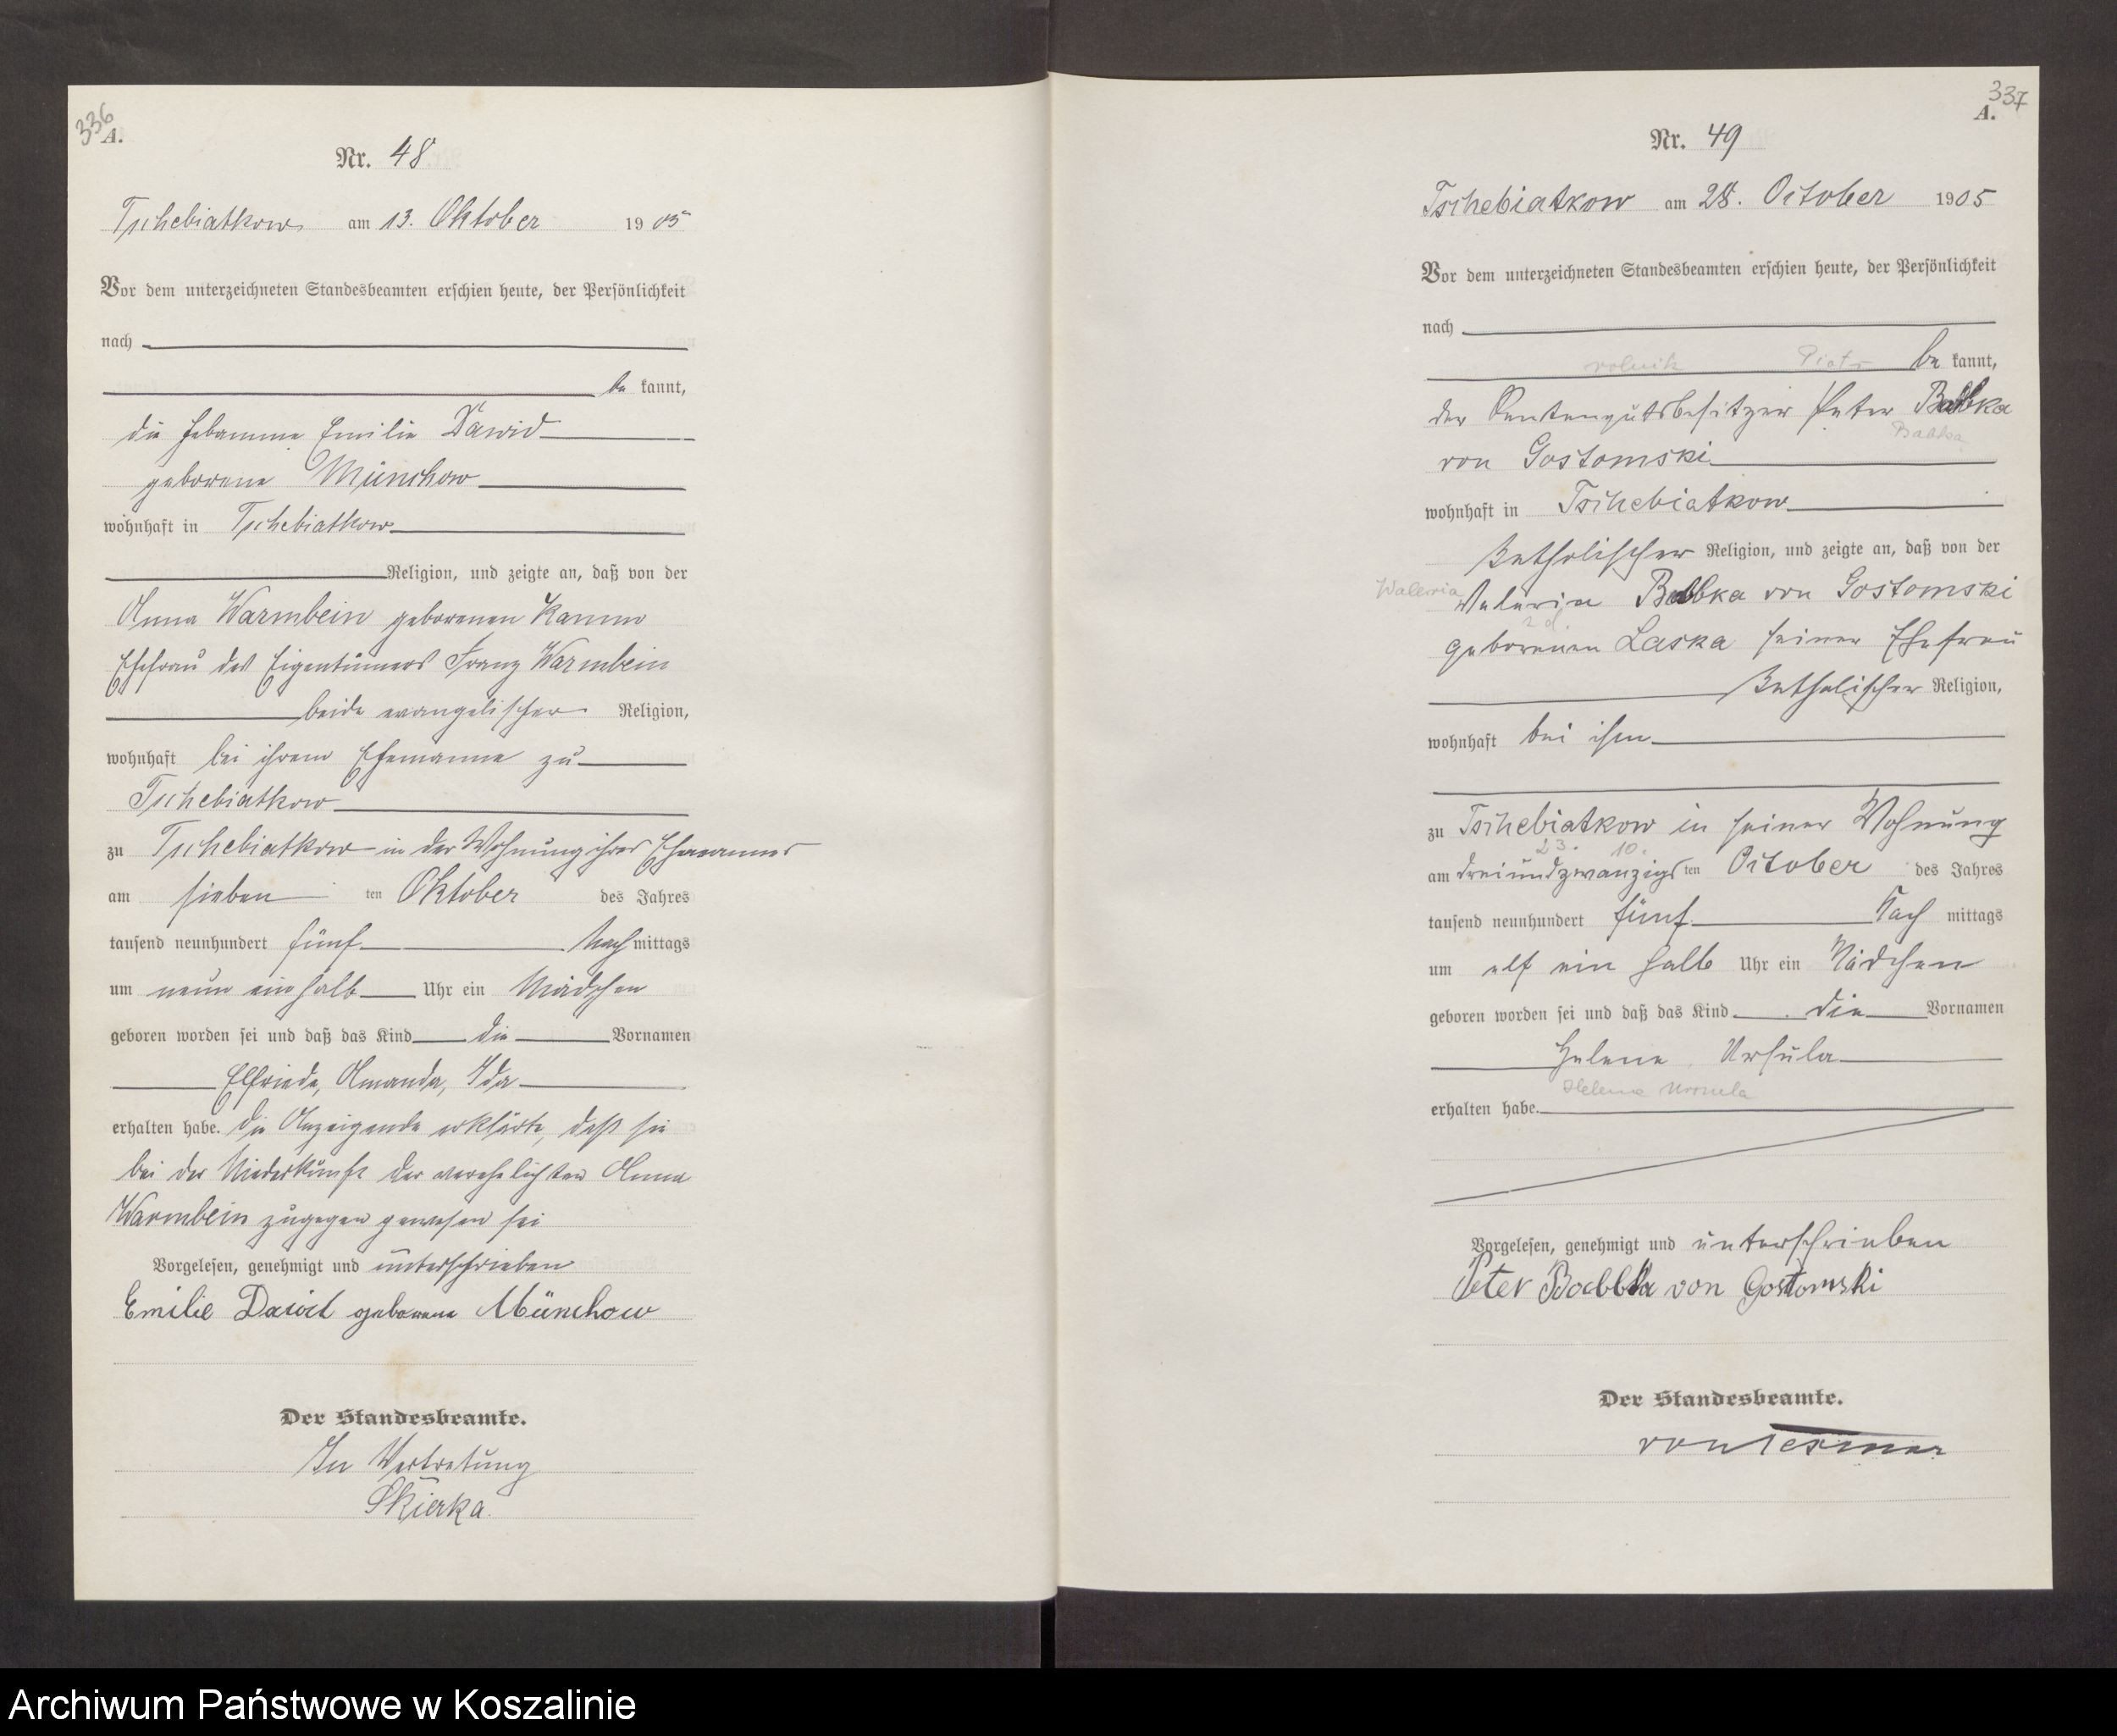 336
A.
Nr. 48
Tschebiatkow am 13. Oktober 1905
Vor dem unterzeichneten Standesbeamten erschien heute, der Persönlichkeit
nach
be kannt,
die Hebamme Emilie Dawid
geborene Münchow
wohnhaft in Tschebiatkow
Religion, und zeigte an, daß von der
Anna Warmbein geborenen
Ehefrau des Eigentümers Franz Warmbein
beide evangelischer Religion,
wohnhaft bei ihrem Ehemanne zu
Tschebiatkow
zu Tschebiatkow in der Wohnung ihres Ehemannes
am sieben ten Oktober des Jahres
tausend neunhundert fünf Nachmittags
um neun ein halb Uhr ein Mädchen
geboren worden sei und daß das Kind die Vornamen
Elfriede, Amanda, Ida
erhalten habe. Die Anzeigende erklärte, daß sie
bei der Niederkunft der verehelichten Anna
Warmbein zugegen gewesen sei
Vorgelesen, genehmigt und unterschrieben
Emilie Dawid geborene Münchow
Der Standesbeamte.
In Vertretung
Skierka.
337
A.
Nr. 49
Tschebiatkow am 28. October 1905
Vor dem unterzeichneten Standesbeamten erschien heute, der Persönlichkeit
nach
rolnik Piotr be kannt,
der Rentengutsbesitzer Peter Babbka
Babka
von Gostomski
wohnhaft in Tschebiatkow
katholischer Religion, und zeigte an, daß von der
Waleria Valeria Babbka von Gostomski
z d.
geborenen Laska seiner Ehefrau
katholischer Religion,
wohnhaft bei ihm
zu Tschebiatkow in seiner Wohnung
23. 10.
am dreiundzwanzigsten October des Jahres
tausend neunhundert fünf Nach mittags
um elf ein halb Uhr ein Mädchen
geboren worden sei und daß das Kind die Vornamen
Helene, Ursula
Helena Urszula
erhalten habe.
Vorgelesen, genehmigt und unterschrieben
Peter Babbka von Gostomski
Der Standesbeamte.
Archiwum Państwowe w Koszalinie